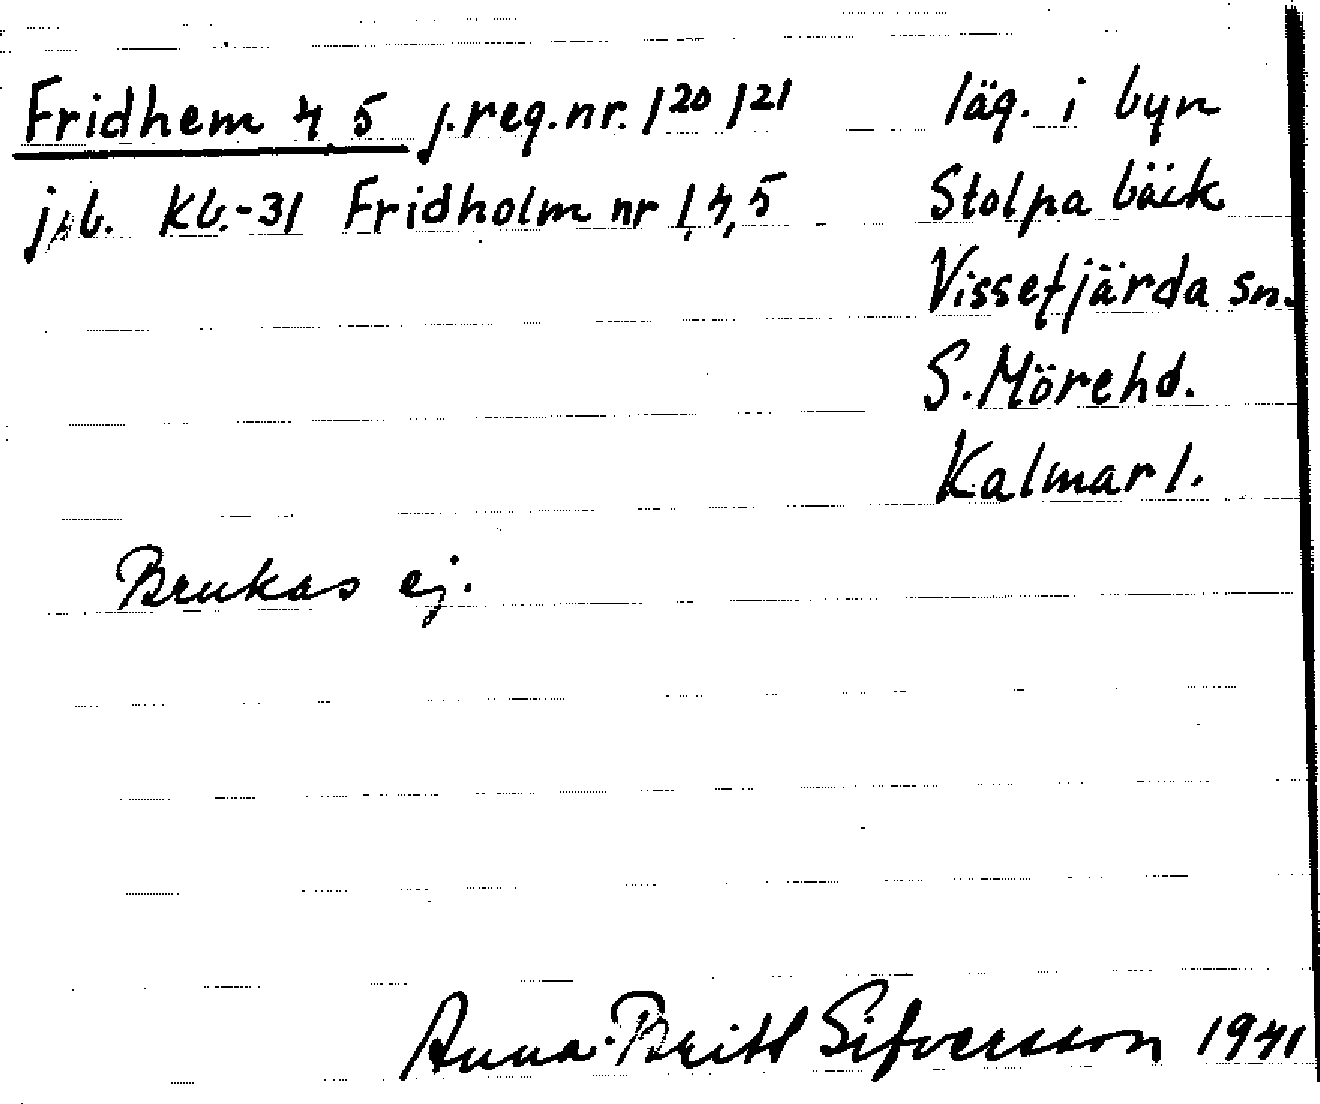 Fridhem 4 5 j.reg.nr. 1²⁰ 1²¹ läg. i byn
jb. Kb.-31 Fridholm nr 1,4,5 Stolpabäck
Vissefjärda sn.
S. Möre hd.
Kalmar l.
Brukas ej.
Anna-Britt Sifversson 1941